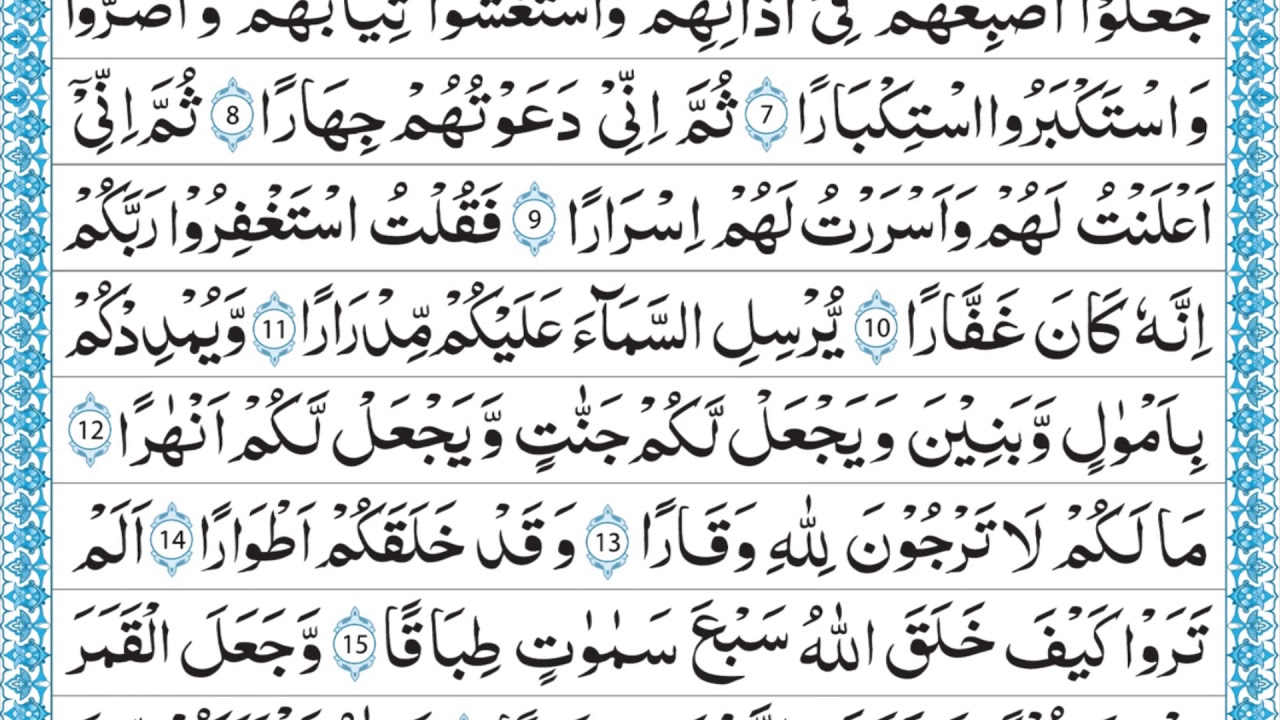 جَعَلُوْٓا اَصَابِعَهُمْ فِیْٓ اٰذَانِهِمْ وَاسْتَغْشَوْا ثِیَابَهُمْ وَ اَصَرُّوْا
وَ اسْتَكْبَرُوا اسْتِكْبَارًا 7 ثُمَّ اِنِّیْ دَعَوْتُهُمْ جِهَارًا 8 ثُمَّ اِنِّیْٓ
اَعْلَنْتُ لَهُمْ وَاَسْرَرْتُ لَهُمْ اِسْرَارًا 9 فَقُلْتُ اسْتَغْفِرُوْا رَبَّكُمْ
اِنَّهٗ كَانَ غَفَّارًا 10 یُّرْسِلِ السَّمَآءَ عَلَیْكُمْ مِّدْرَارًا 11 وَّیُمْدِدْكُمْ
بِاَمْوٰلٍ وَّبَنِیْنَ وَ یَجْعَلْ لَّكُمْ جَنّٰتٍ وَّ یَجْعَلْ لَّكُمْ اَنْهٰرًا 12
مَا لَكُمْ لَا تَرْجُوْنَ لِلّٰهِ وَقَارًا 13 وَ قَدْ خَلَقَكُمْ اَطْوَارًا 14 اَلَمْ
تَرَوْا كَیْفَ خَلَقَ اللّٰهُ سَبْعَ سَمٰوٰتٍ طِبَاقًا 15 وَّ جَعَلَ الْقَمَرَ